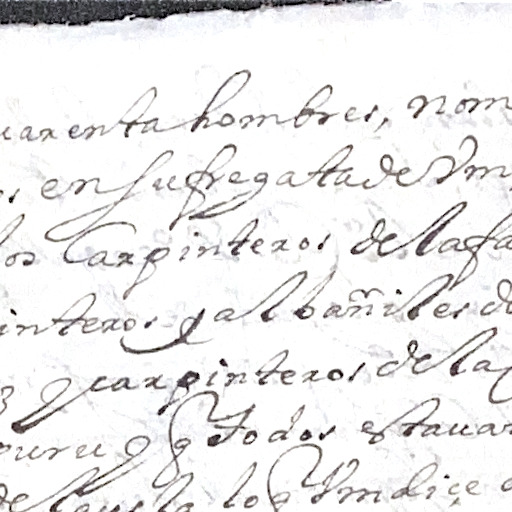 uarenta hombres, nom
os en su fregata de Ym
los Carpinteros de la fa
interos y albañiles de
y carpinteros de la
puru y q Todos estauan
de
lo q Yndiçe